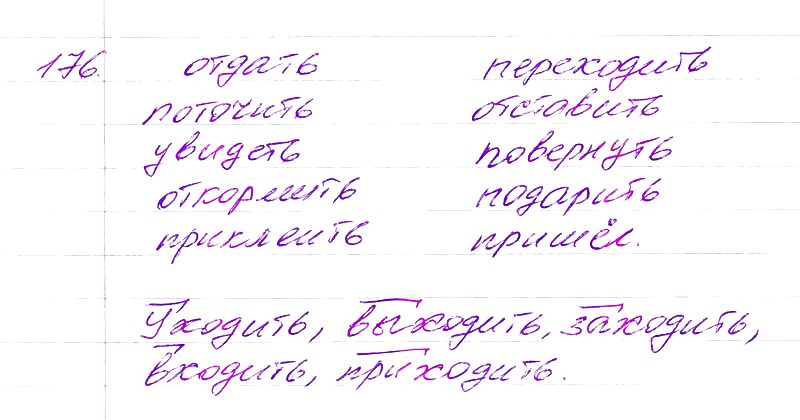 176. отдать переходить
поточить отставить
увидеть повернуть
откормить подарить
приклеить пришёл.
Уходить, выходить, заходить,
входить, приходить.